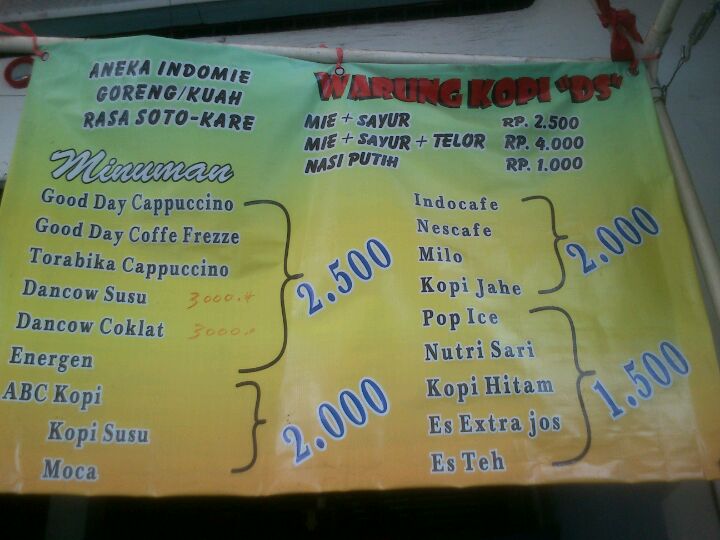 ANEKA INDOMIE
GORENG/KUAH
RASA SOTO-KARE
WARUNG KOPI "DS"
MIE + SAYUR RP. 2.500
MIE + SAYUR + TELOR RP. 4.000
NASI PUTIH RP. 1.000
Minuman
Good Day Cappuccino
Good Day Coffe Frezze
Torabika Cappuccino
Dancow Susu 3000
Dancow Coklat 3000
Energen
2.500
ABC Kopi
Kopi Susu
Moca
2.000
Indocafe
Nescafe
Milo
Kopi Jahe
2.000
Pop Ice
Nutri Sari
Kopi Hitam
Es Extra jos
Es Teh
1.500